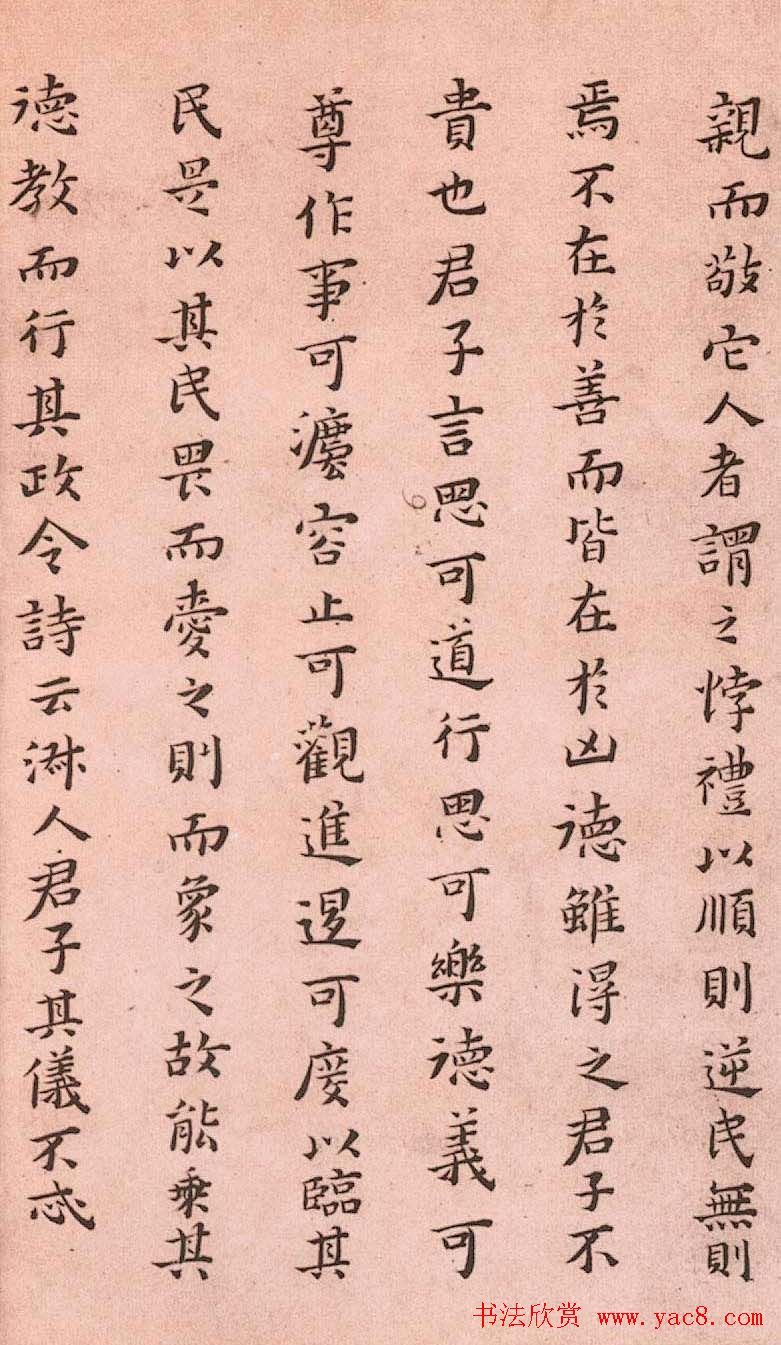 親而敬它人者謂之悖禮以順則逆民無則
焉不在於善而皆在於凶徳雖得之君子不
貴也君子言思可道行思可樂徳義可
尊作事可灋容止可觀進退可度以臨其
民是以其民畏而愛之則而象之故能乗其
徳教而行其政令詩云淑人君子其儀不忒
书法欣赏 www.yac8.com